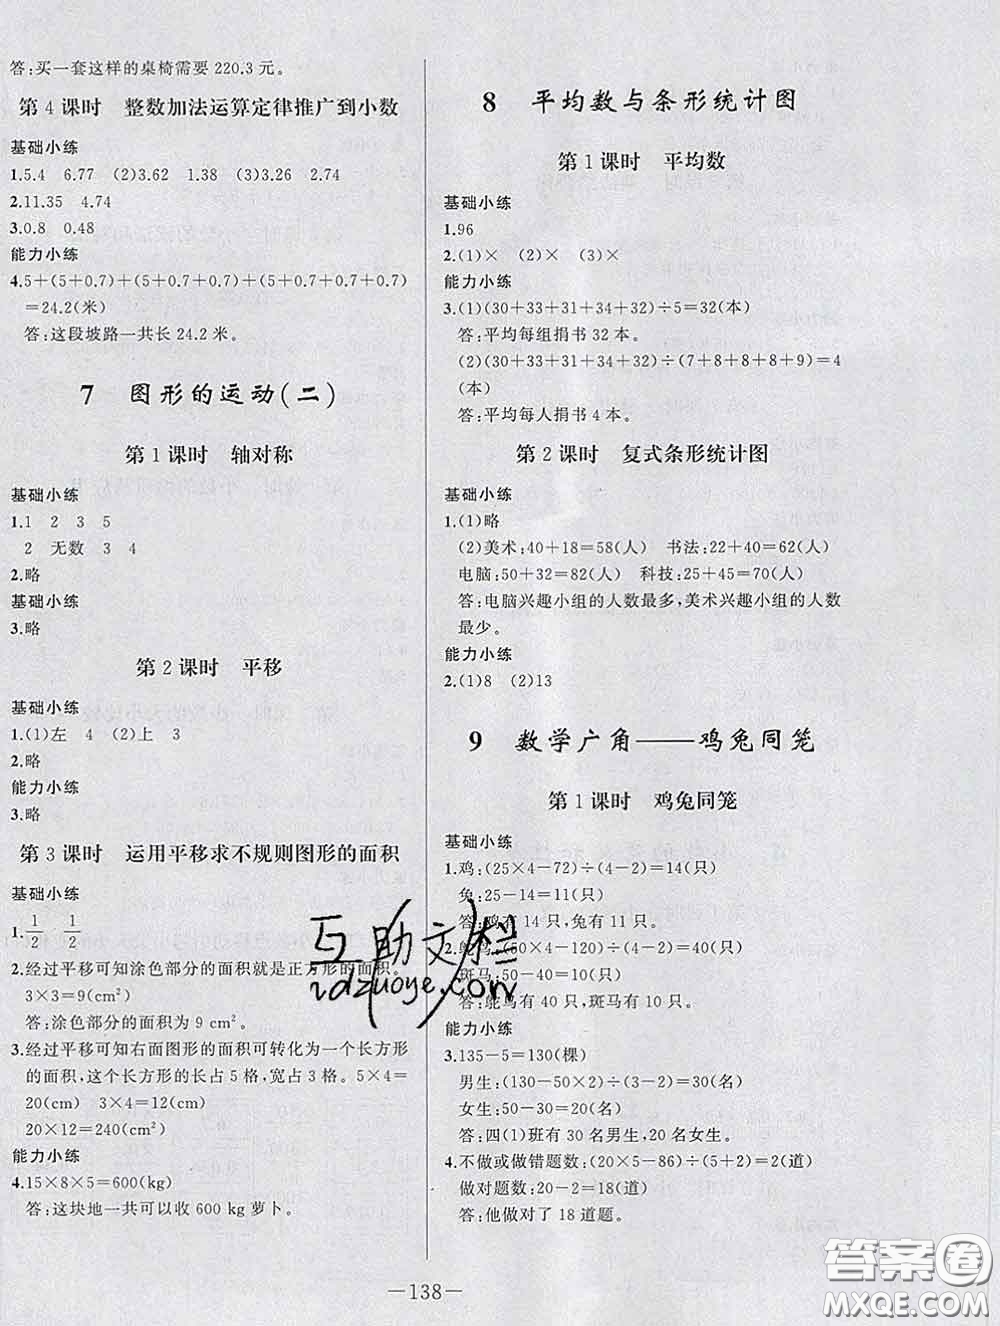 答:买一套这样的桌椅需要 220.3 元。
第 4 课时　整数加法运算定律推广到小数
基础小练
1.5.4　6.77　(2)3.62　1.38　(3)3.26　2.74
2.11.35　4.74
3.0.8　0.48
能力小练
4.5+(5+0.7)+(5+0.7+0.7)+(5+0.7+0.7+0.7)
=24.2(米)
答:这段坡路一共长 24.2 米。
7　图形的运动(二)
第 1 课时　轴对称
基础小练
1.1　2　3　5
2　无数　3　4
2.略
基础小练
3.略
第 2 课时　平移
基础小练
1.(1)左　4　(2)上　3
2.略
能力小练
3.略
第 3 课时　运用平移求不规则图形的面积
基础小练
1.1/2　1/2
2.经过平移可知涂色部分的面积就是正方形的面积。
3×3=9(cm²)
答:涂色部分的面积为 9 cm²。
3.经过平移可知右面图形的面积可转化为一个长方形
的面积,这个长方形的长占 5 格,宽占 3 格。5×4=
20(cm)　3×4=12(cm)
20×12=240(cm²)
能力小练
4.15×8×5=600(kg)
答:这块地一共可以收 600 kg 萝卜。
8　平均数与条形统计图
第 1 课时　平均数
基础小练
1.96
2.(1)×　(2)×　(3)×
能力小练
3.(1)(30+33+31+34+32)÷5=32(本)
答:平均每组捐书 32 本。
(2)(30+33+31+34+32)÷(7+8+8+8+9)=4
(本)
答:平均每人捐书 4 本。
第 2 课时　复式条形统计图
基础小练
1.(1)略
(2)美术:40+18=58(人)　书法:22+40=62(人)
电脑:50+32=82(人)　科技:25+45=70(人)
答:电脑兴趣小组的人数最多,美术兴趣小组的人数
最少。
能力小练
1.(1)8　(2)13
9　数学广角——鸡兔同笼
第 1 课时　鸡兔同笼
基础小练
1.鸡:(25×4-72)÷(4-2)=14(只)
兔:25-14=11(只)
答:鸡有 14 只,兔有 11 只。
2.鸵鸟:(50×4-120)÷(4-2)=40(只)
斑马:50-40=10(只)
答:鸵鸟有 40 只,斑马有 10 只。
能力小练
3.135-5=130(棵)
男生:(130-50×2)÷(3-2)=30(名)
女生:50-30=20(名)
答:四(1)班有 30 名男生,20 名女生。
4.不做或做错题数:(20×5-86)÷(5+2)=2(道)
做对题数:20-2=18(道)
答:他做对了 18 道题。
—138—
互助文栏
idzuoye.com
答案圈
MXQE.COM